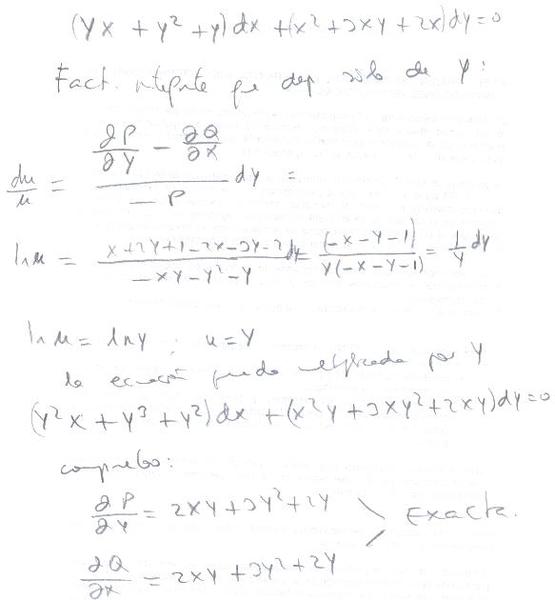 (yx + y² + y)dx + (x² + 3xy + 2x)dy = 0
Fact. integrte que dep. solo de y:
du/u = (∂P/∂y − ∂Q/∂x)/(−P) dy =
ln u = (x+2y+1−2x−3y−2)/(−xy−y²−y) dy = (−x−y−1)/(y(−x−y−1)) = 1/y dy
ln u = ln y ; u = y
la ecuación queda multiplicada por y
(y²x + y³ + y²)dx + (x²y + 3xy² + 2xy)dy = 0
compruebo:
∂P/∂y = 2xy + 3y² + 2y
Exacta.
∂Q/∂x = 2xy + 3y² + 2y